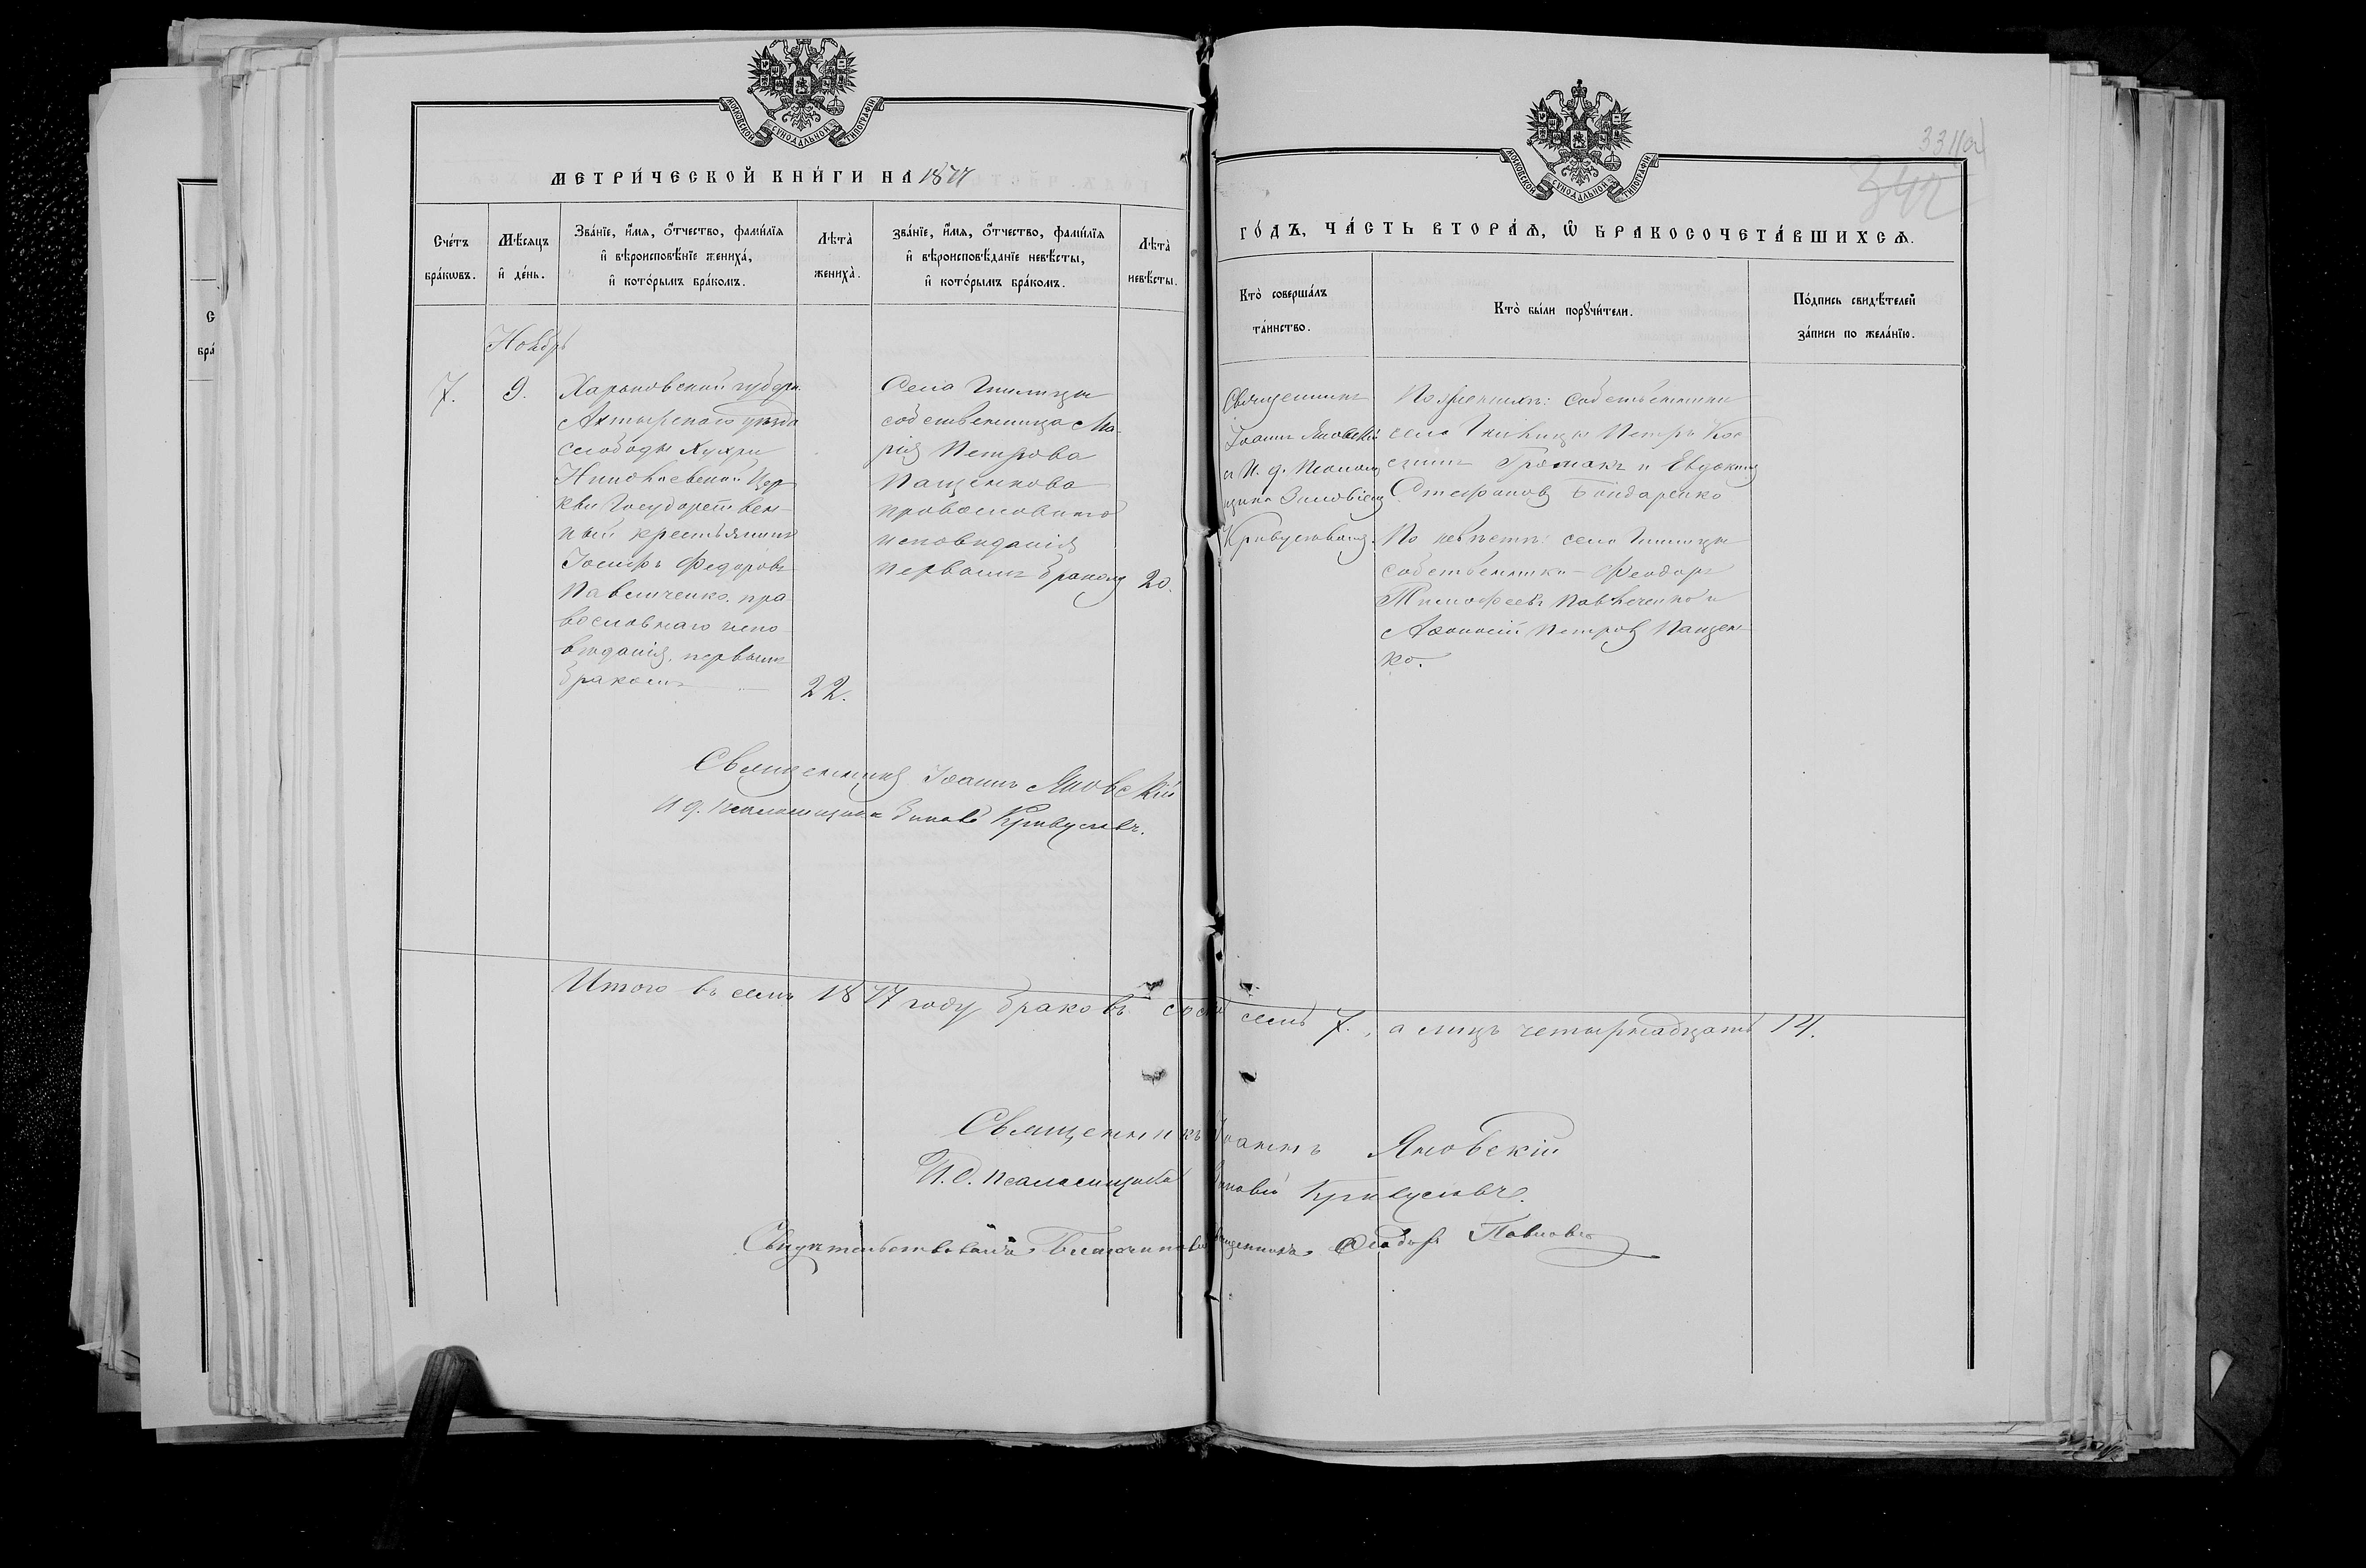 МОСКОВСКОЙ СѴНОДАЛЬНОЙ ТИПОГРАФІИ
МЕТРИ́ЧЕСКОЙ КНИ́ГИ НА 1877
Сче́тъ бра́кωвъ.
Мѣ́сяцъ и҆ де́нь.
Зва́нїе, и҆́мѧ, ѻ҆́тчество, фами́лїѧ и҆ вѣроисповѣ́нїе жениха̀, и҆ кото́рымъ бра́комъ.
Лѣта̀ жениха̀.
зва́нїе, и҆́мѧ, ѻ҆́тчество, фами́лїѧ и҆ вѣроисповѣ́данїе невѣ́сты, и҆ кото́рымъ бра́комъ.
Лѣта̀ невѣ́сты.
Ноябрь
7.
9.
Харьковской губерн.
Ахтырскаго уезда
слободы Хухри
Николаевской Цер
кви Государствен-
ный крестьянинъ
Іосифъ Федоровъ
Павличенко. пра-
вославнаго испо-
веданія, первымъ
бракомъ
22.
Села
собственница Ма-
рія Петрова
Пащенкова
православнаго
исповиданія
первымъ бракомъ
20.
Священникъ Іоаннъ Яновскій
И д. псаломщика Зиновій Кривусевъ.
Итого въ семъ 1877 году браковъ
Священникъ
И. д. псаломщика
Свидѣтельствовалъ Благочинный
МОСКОВСКОЙ СѴНОДАЛЬНОЙ ТИПОГРАФІИ
331/а
342
ГО́ДЪ, ЧА́СТЬ ВТОРА́Ѧ, Ѽ БРАКОСОЧЕТА́ВШИХСѦ.
Кто̀ соверша́лъ та́инство.
Кто̀ бы́ли порꙋчи́тели.
По́дпись свидѣ́телей за́писи по жела́нїю.
Священникъ
Іоаннъ Яновскій
и И. д. Псалом
щика Зиновіем
По женихѣ: собственники
села Петръ Кос
Громакъ и Евдокимъ
Стефановъ Бондаренко
По невѣстѣ: села
собственники Феодоръ
Тимофеевъ Павличенко и
Афанасій Петровъ Пащен-
ко.
семь 7., а лицъ четырнадцать 14.
Іоаннъ Яновскій
Зиновій Кривусевъ.
Священникъ Феодоръ Павловъ
С
бра́